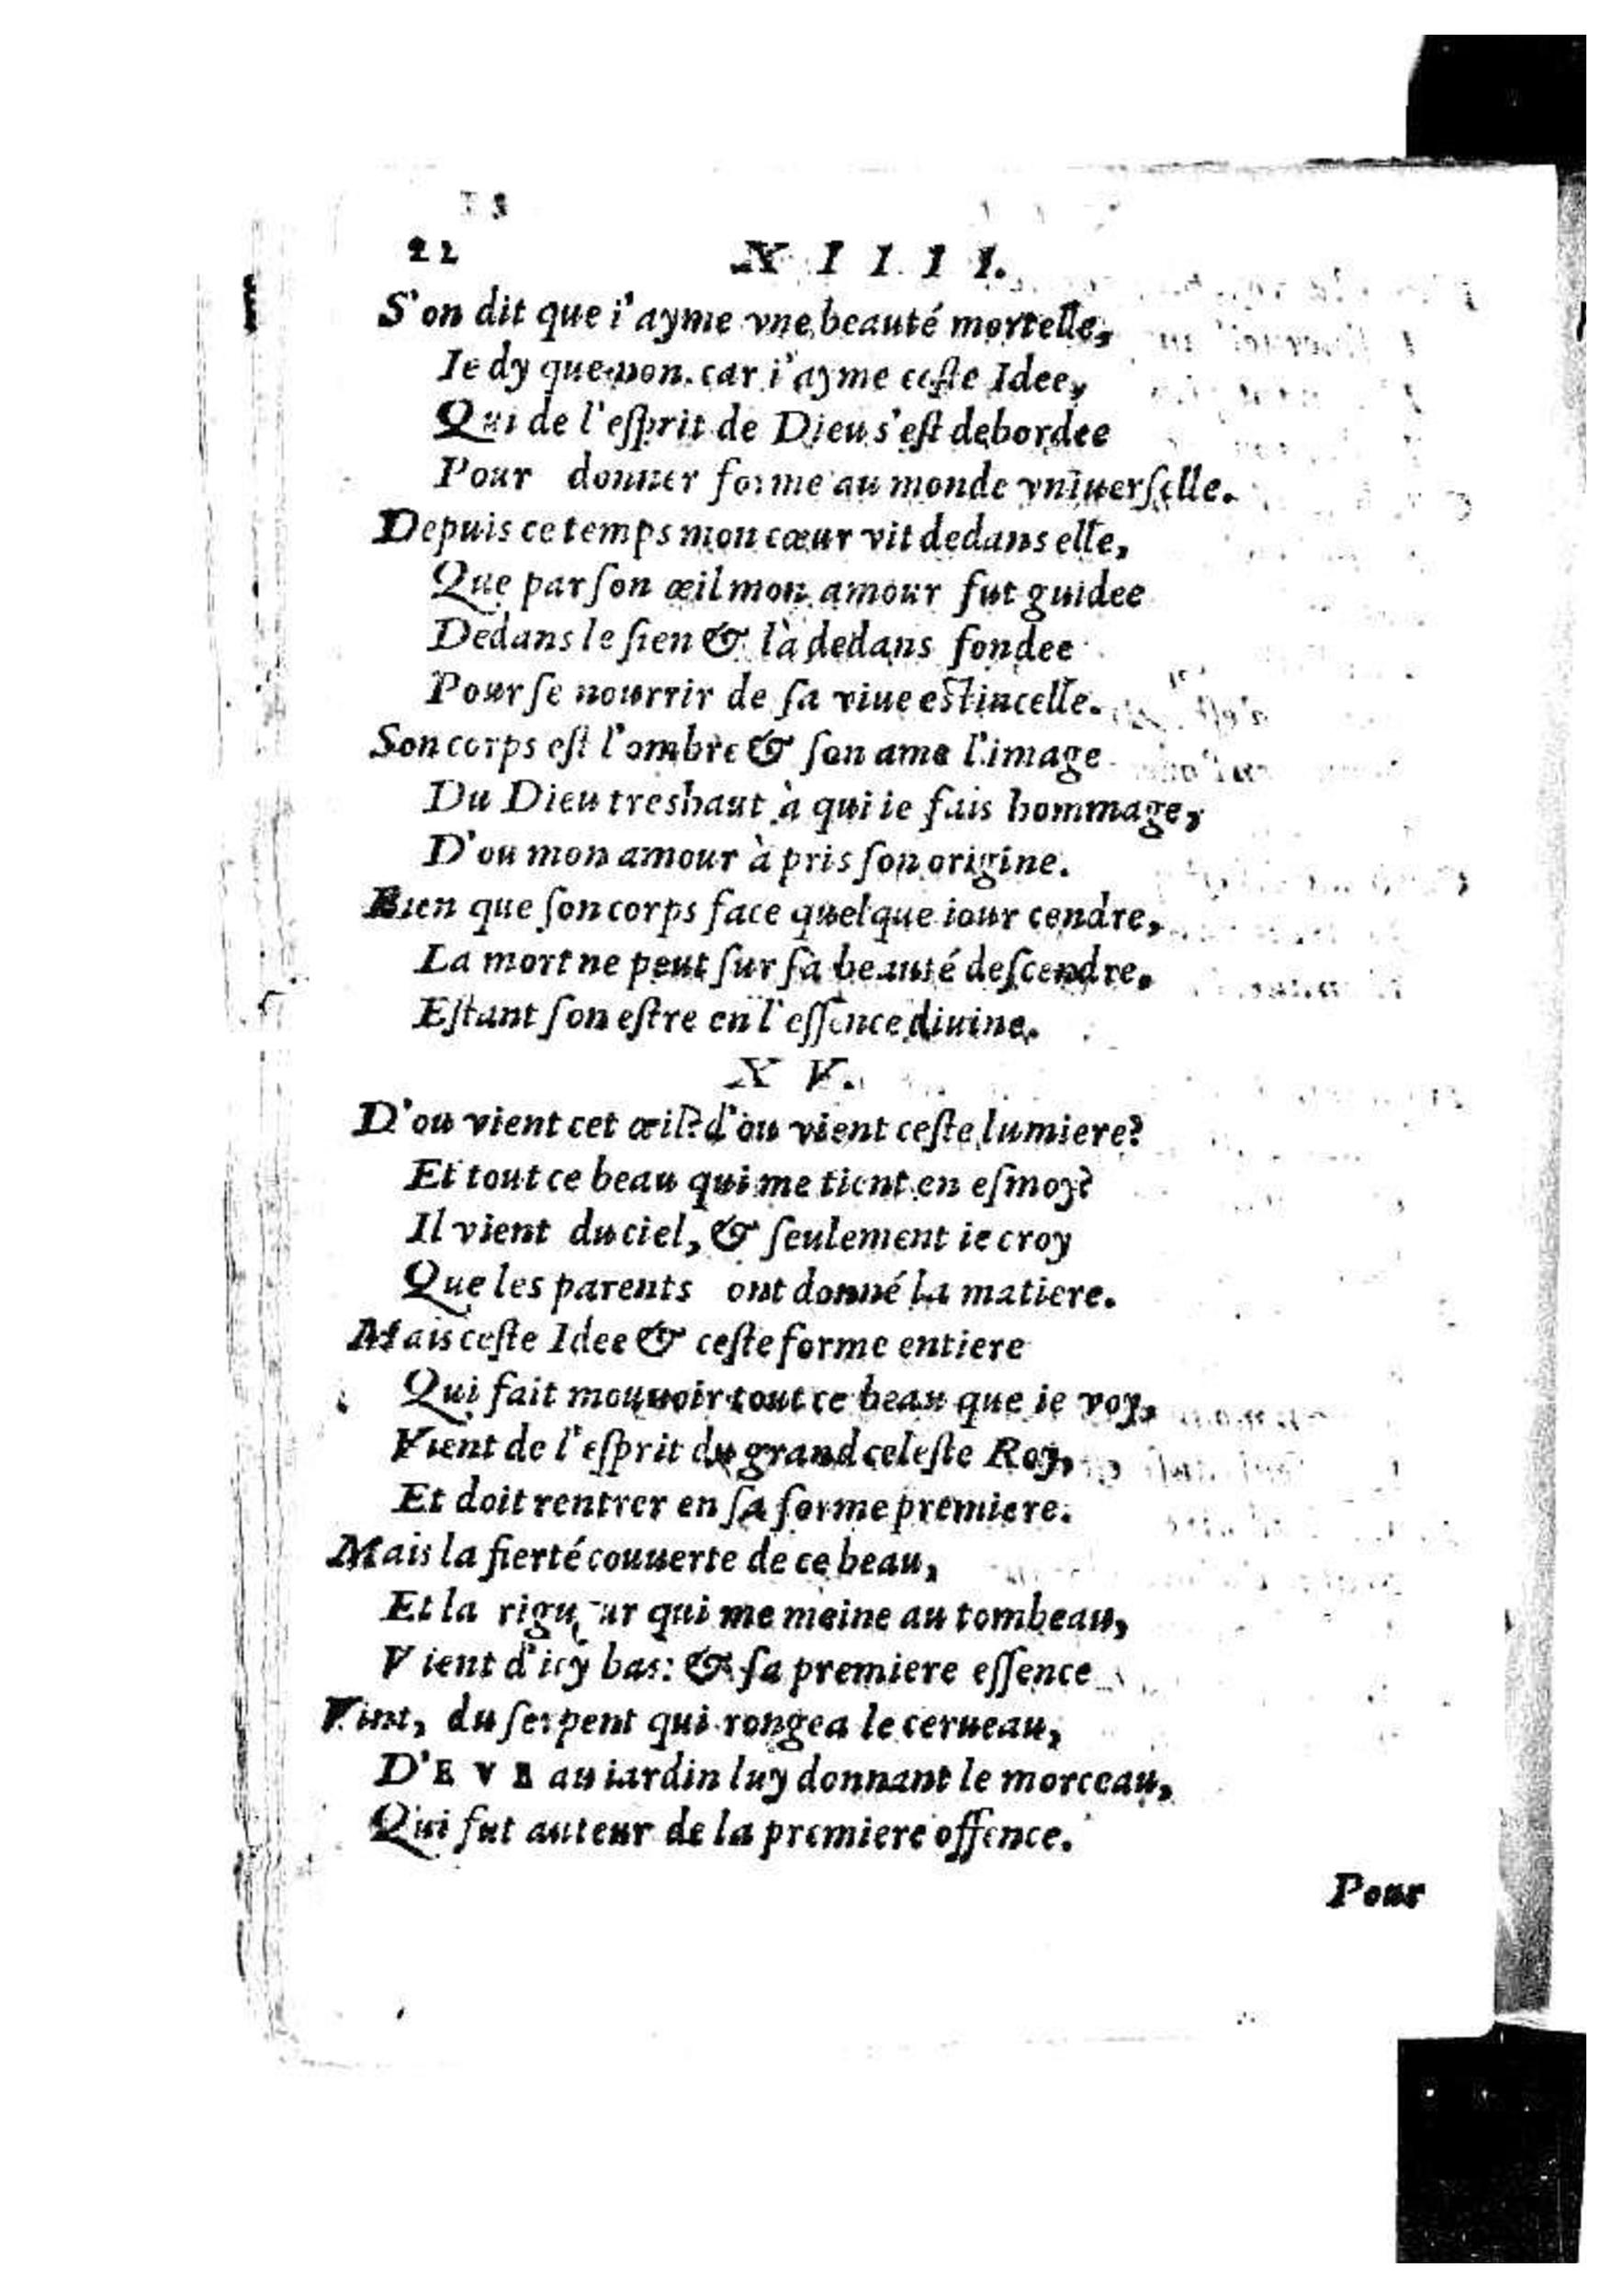 22
XIIII.
S'on dit que i'ayme vne beauté mortelle,
Ie dy que non. car i'ayme ceſte Idee,
Qui de l'eſprit de Dieu s'eſt debordee
Pour donner forme au monde vniuerſelle.
Depuis ce temps mon cœur vit dedans elle,
Que par ſon œil mon amour fut guidee
Dedans le ſien & là dedans fondee
Pour ſe nourrir de ſa viue estincelle.
Son corps eſt l'ombre & ſon ame l'image
Du Dieu treshaut à qui ie fais hommage,
D'ou mon amour à pris ſon origine.
Bien que ſon corps face quelque iour cendre,
La mort ne peut ſur ſa beauté deſcendre.
Eſtant ſon eſtre en l'eſſence diuine.
XV.
D'ou vient cet œil? d'ou vient ceſte lumiere?
Et tout ce beau qui me tient en eſmoy?
Il vient du ciel, & ſeulement ie croy
Que les parents ont donné la matiere.
Mais ceſte Idee & ceſte forme entiere
Qui fait mouuoir tout ce beau que ie voy,
Vient de l'eſprit du grand celeſte Roy,
Et doit rentrer en ſa forme premiere.
Mais la fierté couuerte de ce beau,
Et la rigueur qui me meine au tombeau,
Vient d'icy bas: & ſa premiere eſſence
Vint, du ſerpent qui rongea le cerueau,
D'EVE au iardin luy donnant le morceau,
Qui fut auteur de la premiere offence.
Pour